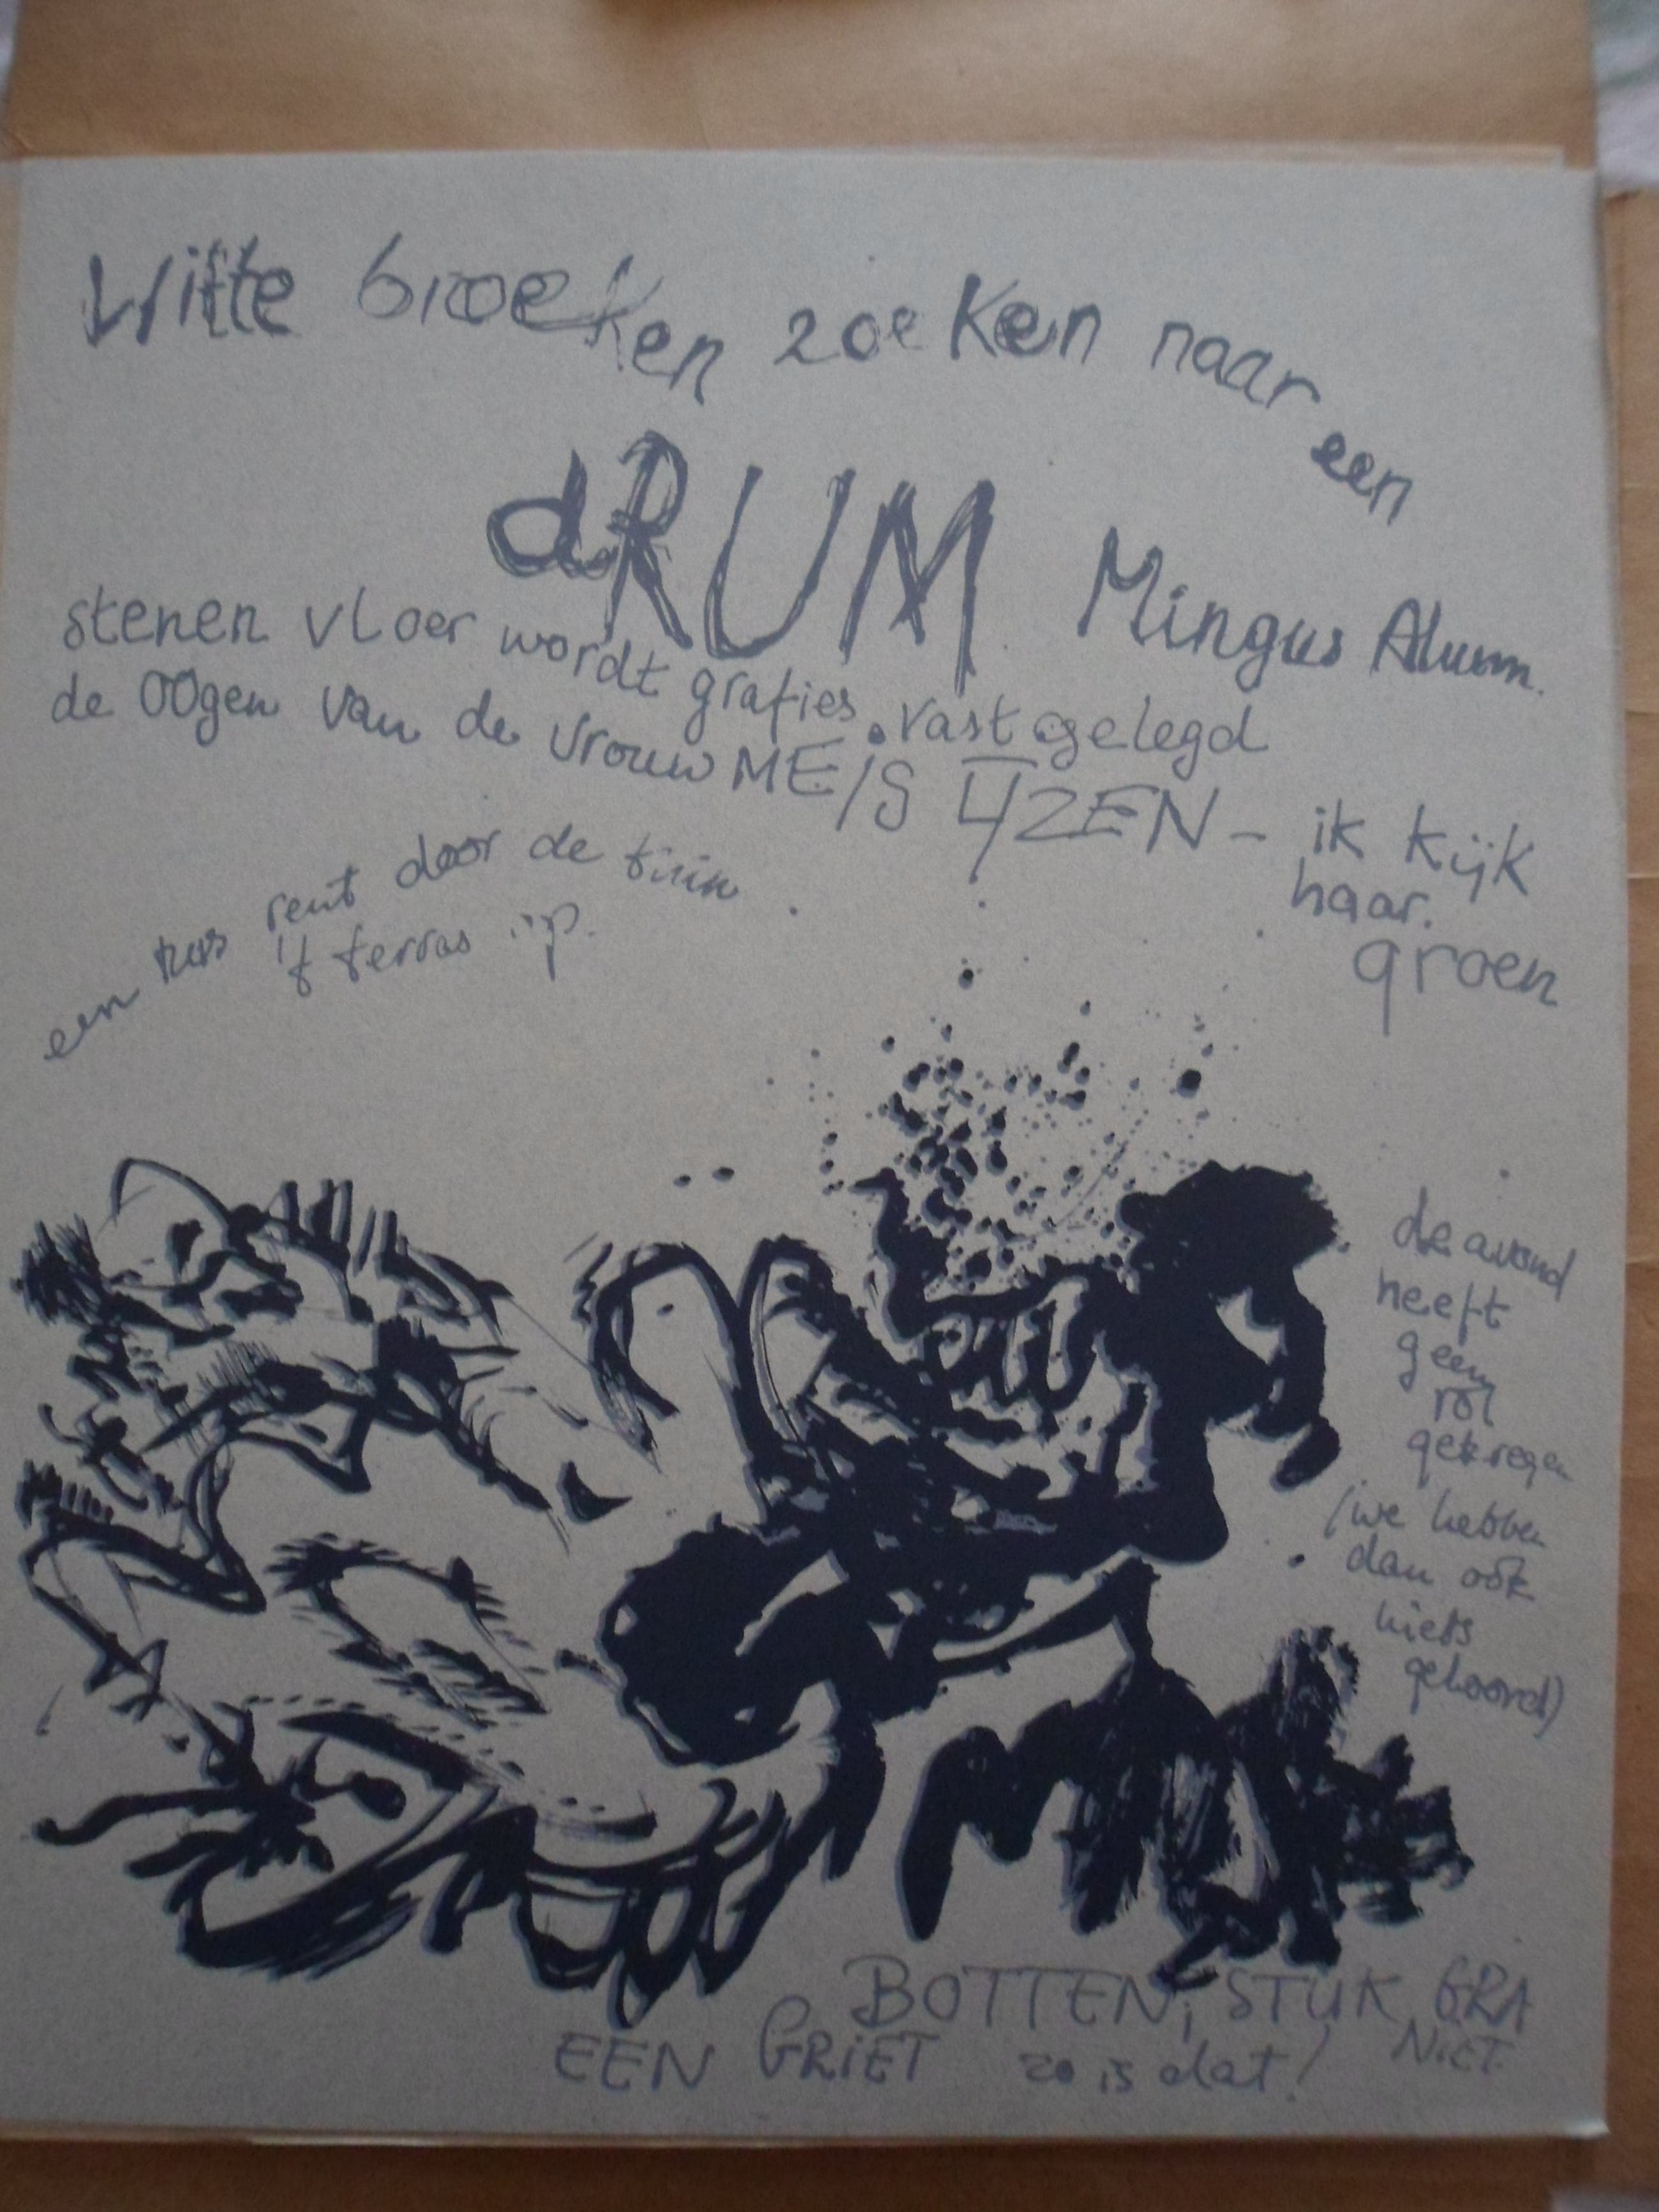 Witte broeken zoeken naar een
dRUM Mingus Alum.
stenen vloer wordt grafies vastgelegd
de OOgen van de vrouw ME/S IJZEN - ik kijk
haar.
groen
een rent door de tuin.
't terras op.
de avond
heeft
geen
rol
gekregen
(we hebben
dan ook
niets
gehoord)
BOTTEN, STUK GRA
NIET.
EEN GRiET zo is dat!